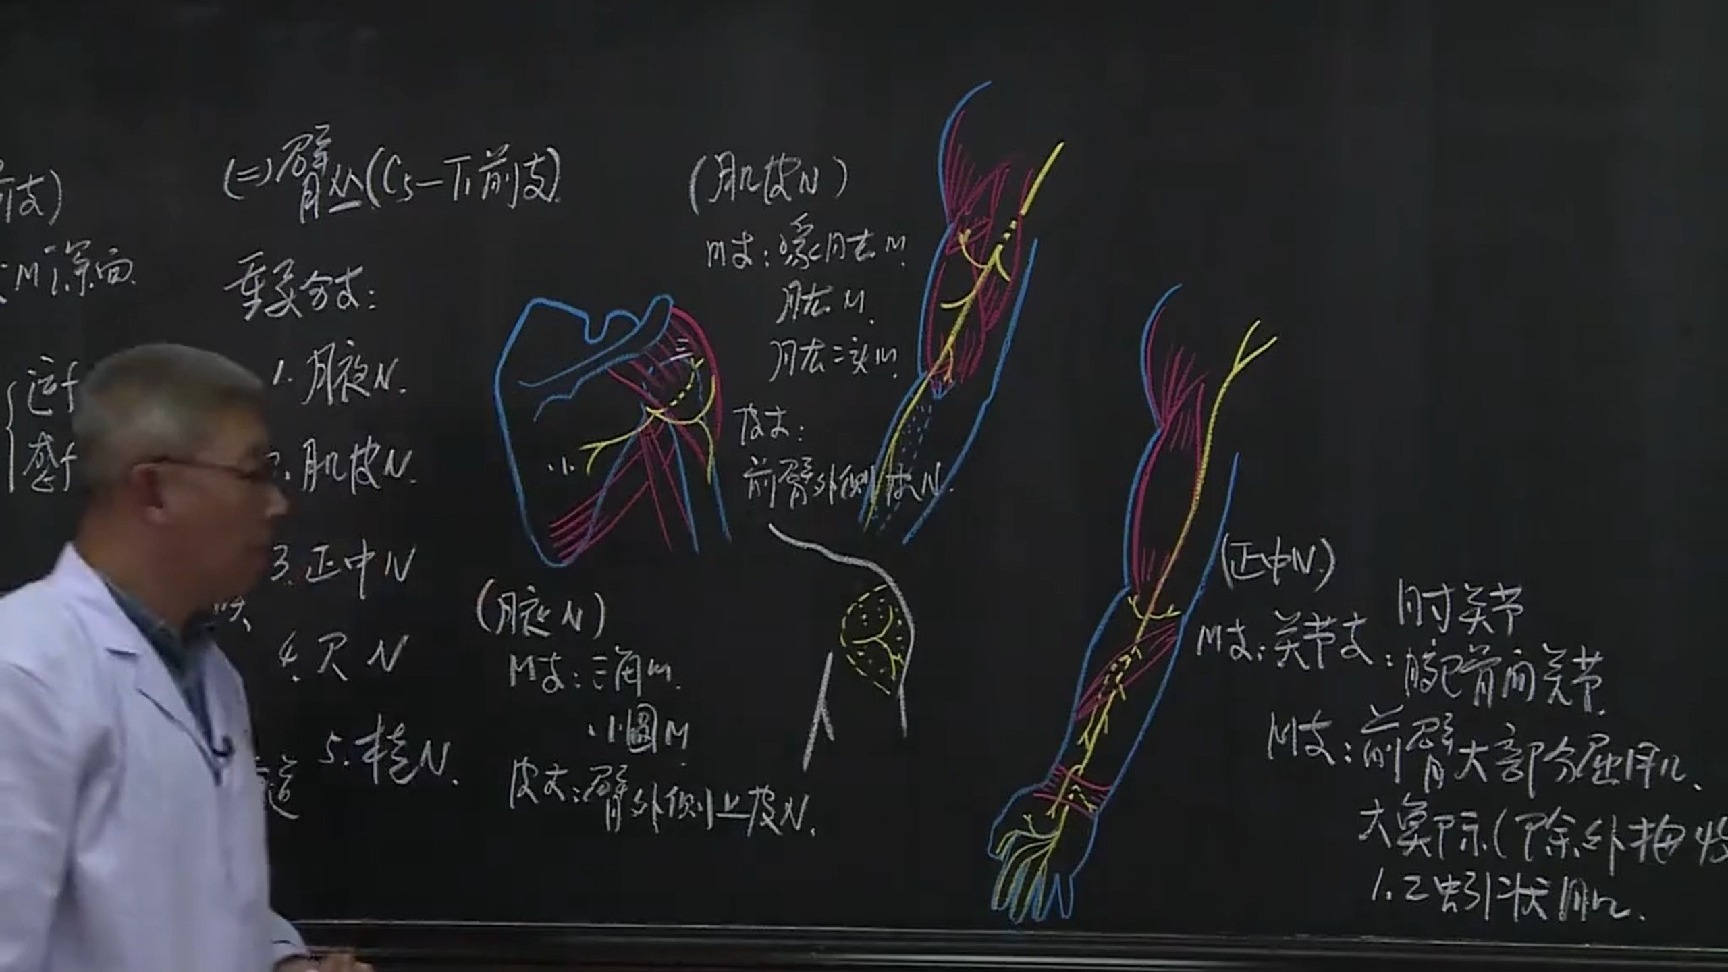 前支)
M深面
(二)臂丛(C5-T1前支)
重要分支:
1.腋N.
2.肌皮N.
3.正中N
4.尺N
5.桡N.
(腋N)
M支:三角M.
小圆M
皮支:臂外侧上皮N.
(肌皮N)
M支:喙肱M.
肱M.
肱二头M.
皮支:
前臂外侧皮N.
三
小
(正中N.)
M支:关节支:肘关节
腕骨间关节
M支:前臂大部分屈肌.
大鱼际(除外拇收
1.2蚓状肌.